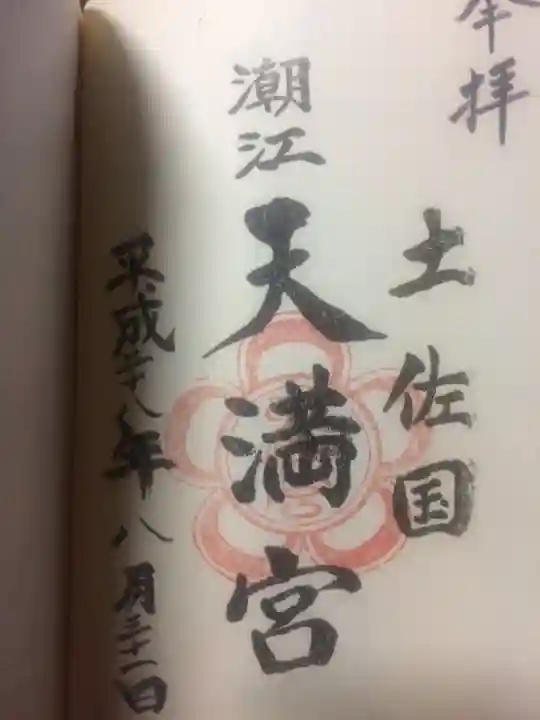 奉拝
土佐国
潮江
天満宮
平成二十八年八月三十一日